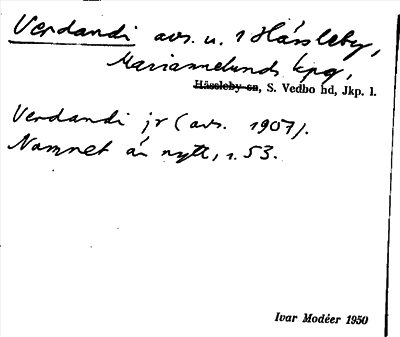 Verdandi avs. u. 1 Hässleby,
Mariannelunds kpg,
Hässleby sn, S. Vedbo hd, Jkp. l.
Verdandi jr (avs. 1907).
Namnet är nytt, s. 53.
Ivar Modéer 1950